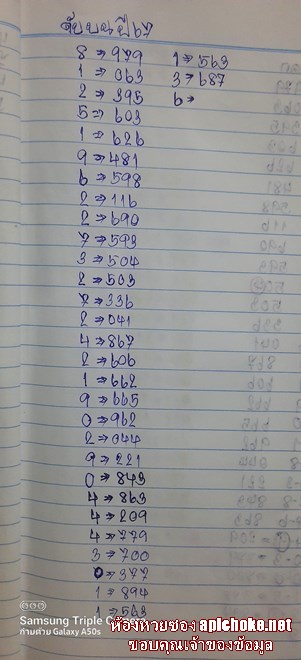 ดับบนปี67
8⇒979
1⇒063
2⇒395
5⇒603
1⇒626
9⇒481
6⇒598
2⇒116
2⇒690
7⇒593
3⇒504
2⇒503
7⇒336
2⇒041
4⇒867
2⇒606
1⇒662
9⇒665
0⇒962
2⇒044
9⇒221
0⇒843
4⇒863
4⇒209
4⇒779
3⇒700
0⇒377
1⇒894
1⇒563
1⇒563
3⇒687
6⇒
Samsung Triple C
ถ่ายด้วย Galaxy A50s
ห้องหวยซอง apichoke.net
ขอบคุณเจ้าของข้อมูล